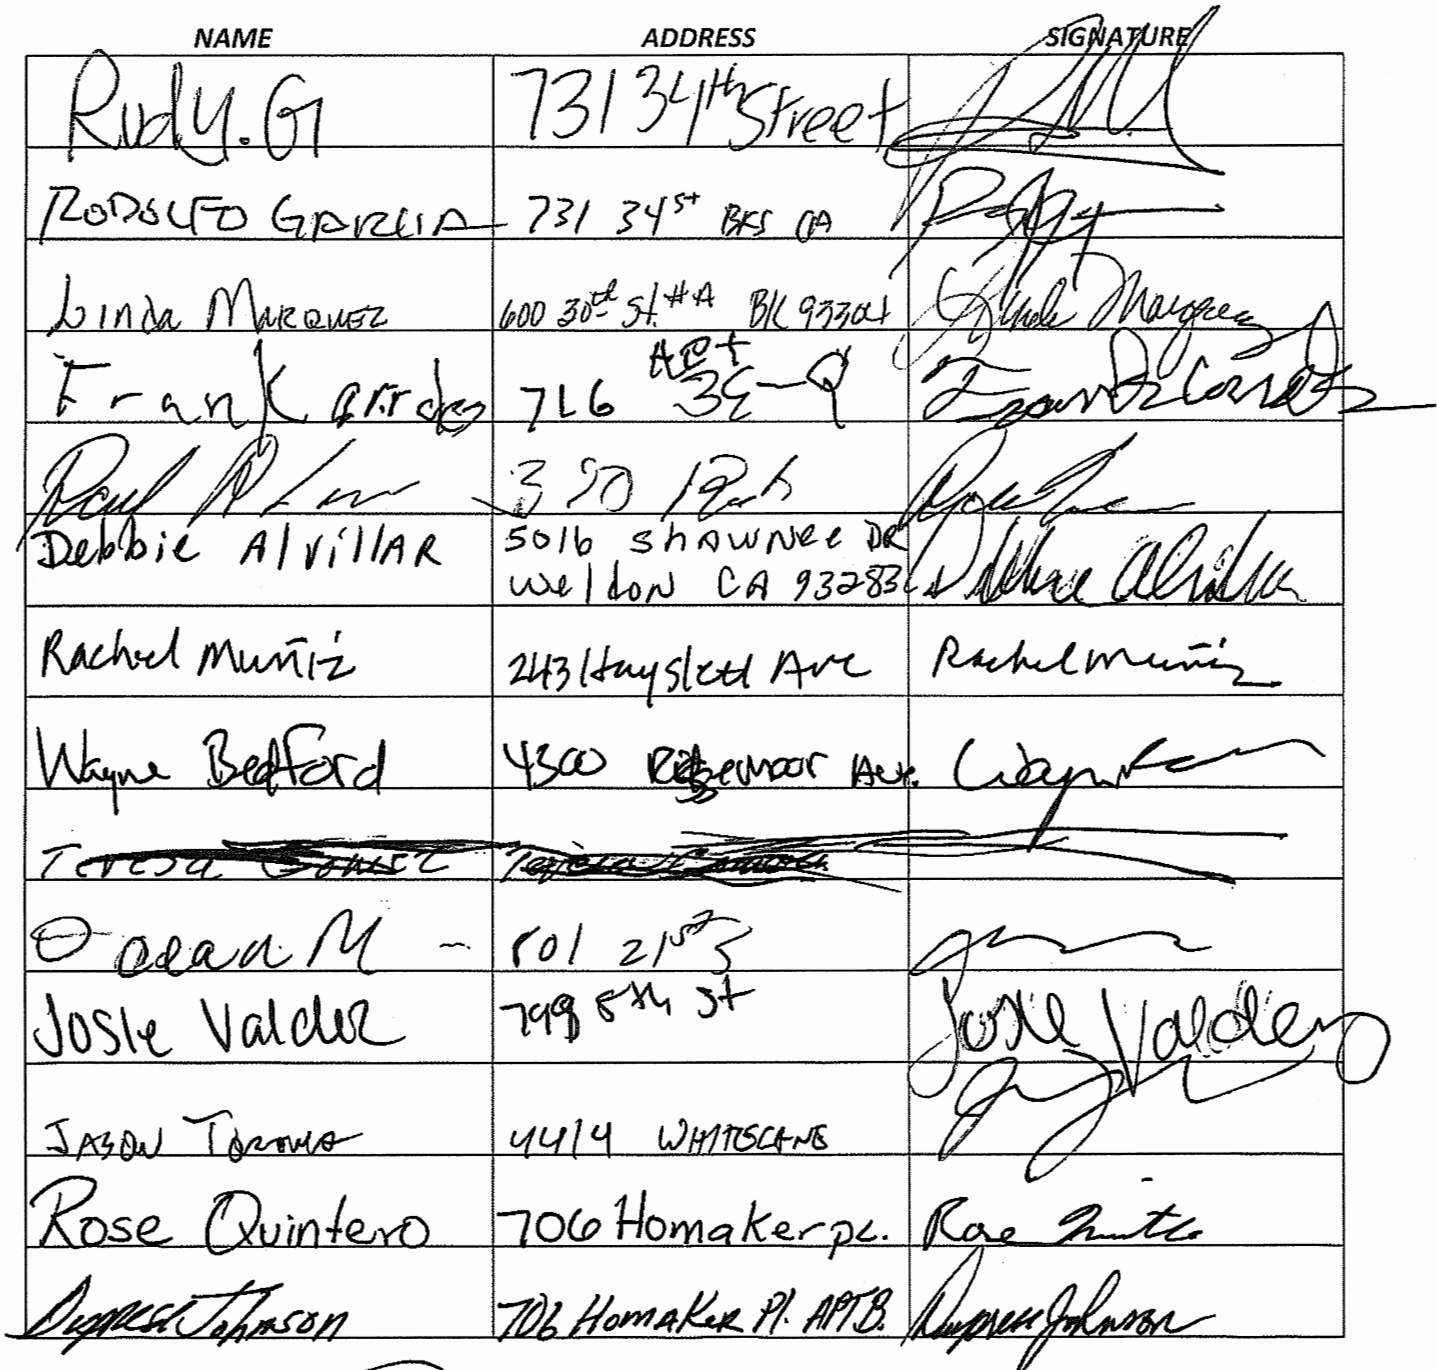 NAME ADDRESS SIGNATURE
Rudy.G 731 34th Street
RODOLFO GARCIA 731 34st BKS CA
Linda MARQUEZ 600 30th St. #A BK 93304 Linda Marquez
APt
Frank 716 34-Q Frank
Paul
Debbie AlvillAR 5016 ShAWNee DR
Weldon CA 93283 Debbie Alvillar
Rachel Muñiz 243 Hayslett Ave Rachel Muñiz
Wayne Bedford 4300 Ridgemoor Ave. Wayne
Teresa Gomez
M - 801 21st
Josie Valdez 798 8th St Josie Valdez
JASON 4414 WHITESLANE
Rose Quintero 706 Homaker pl. Rose
Johnson 706 Homaker Pl. APT B. Johnson